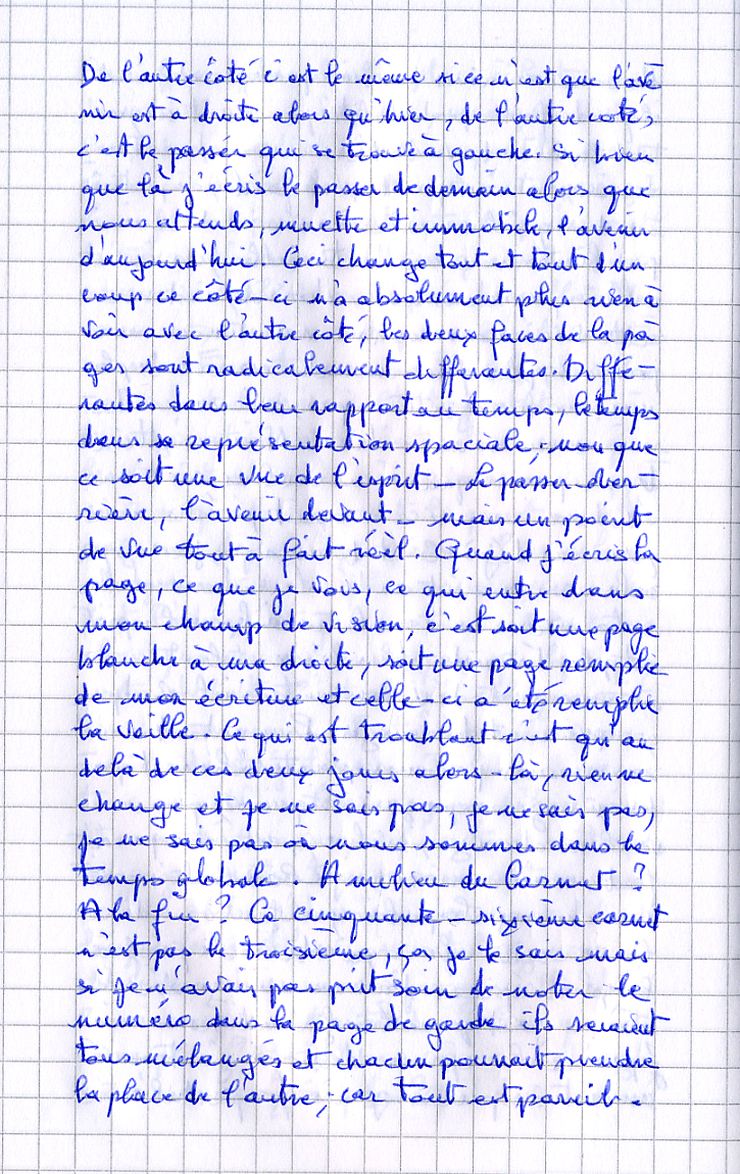 De l'autre coté c'est le même si ce n'est que l'ave
nir est à droite alors qu'hier, de l'autre coté,
c'est le passer qui se trouve à gauche. Si bien
que là j'écris le passer de demain alors que
nous attends, muette et immobile, l'avenir
d'aujourd'hui. Ceci change tout et tout d'un
coup ce côté-ci n'a absolument plus rien à
voir avec l'autre côté, les deux faces de la pa
ges sont radicalement differantes. Diffe-
rantes dans leur rapport au temps, le temps
dans sa représentation spaciale, non que
ce soit une vue de l'esprit - Le passer der-
rière, l'avenir devant - mais un point
de vue tout à fait réèl. Quand j'écris la
page, ce que je vois, ce qui entre dans
mon champ de vision, c'est soit une page
blanche à ma droite, soit une page remplie
de mon écriture et celle-ci a été remplie
la veille. Ce qui est troublant c'est qu'au
delà de ces deux jours alors-là, rien ne
change et je ne sais pas, je ne sais pas,
je ne sais pas où nous sommes dans le
temps globale. A milieu du Carnet ?
A la fin ? Ce cinquante-sixième carnet
n'est pas le troisième, ça je le sais mais
si je n'avais pas prit soin de noter le
numéro dans la page de garde ils seraient
tous mélangés et chacun pourrait prendre
la place de l'autre, car tout est pareil.